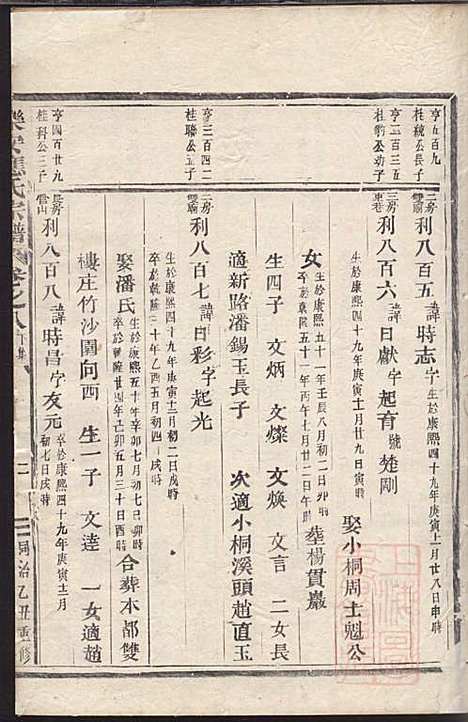 亨五百九
桂統公長子
亨二百三五
桂豹公幼子
亨三百四二
桂聯公五子
亨四百廿九
桂科公三子
二房
雙廟
利八百五
諱
時志
字
生於康熙四十九年庚寅十一月廿八日申時
三房
東巷
利八百六
諱
日獻
字
起育
號
楚剛
生於康熙四十九年庚寅十二月廿九日寅時
娶小桐周士魁公
女
生於康熙五十一年壬辰八月初二日卯時
卒於乾隆五十一年丙午七月廿二日午時
塟楊貫巖
生四子 文炳 文燦 文煥 文言 二女長
適新路潘錫玉長子 次適小桐溪頭趙直玉
二房
雙廟
利八百七
諱
日彩
字
起光
生於康熙四十九年庚寅十二月初二日戌時
卒於乾隆三十年乙酉五月初四日戌時
娶潘氏
生於康熙五十年辛卯七月初七日卯時
卒於乾隆廿四年己卯五月三十日酉時
合葬本都雙
樓庄竹沙園向西 生一子 文逵 一女適趙
長房
雲山
利八百八
諱
時昌
字
友元
生於康熙四十九年庚寅十二月
初七日戌時
樂安蔣氏宗譜
卷之八
下集
同治乙丑重修